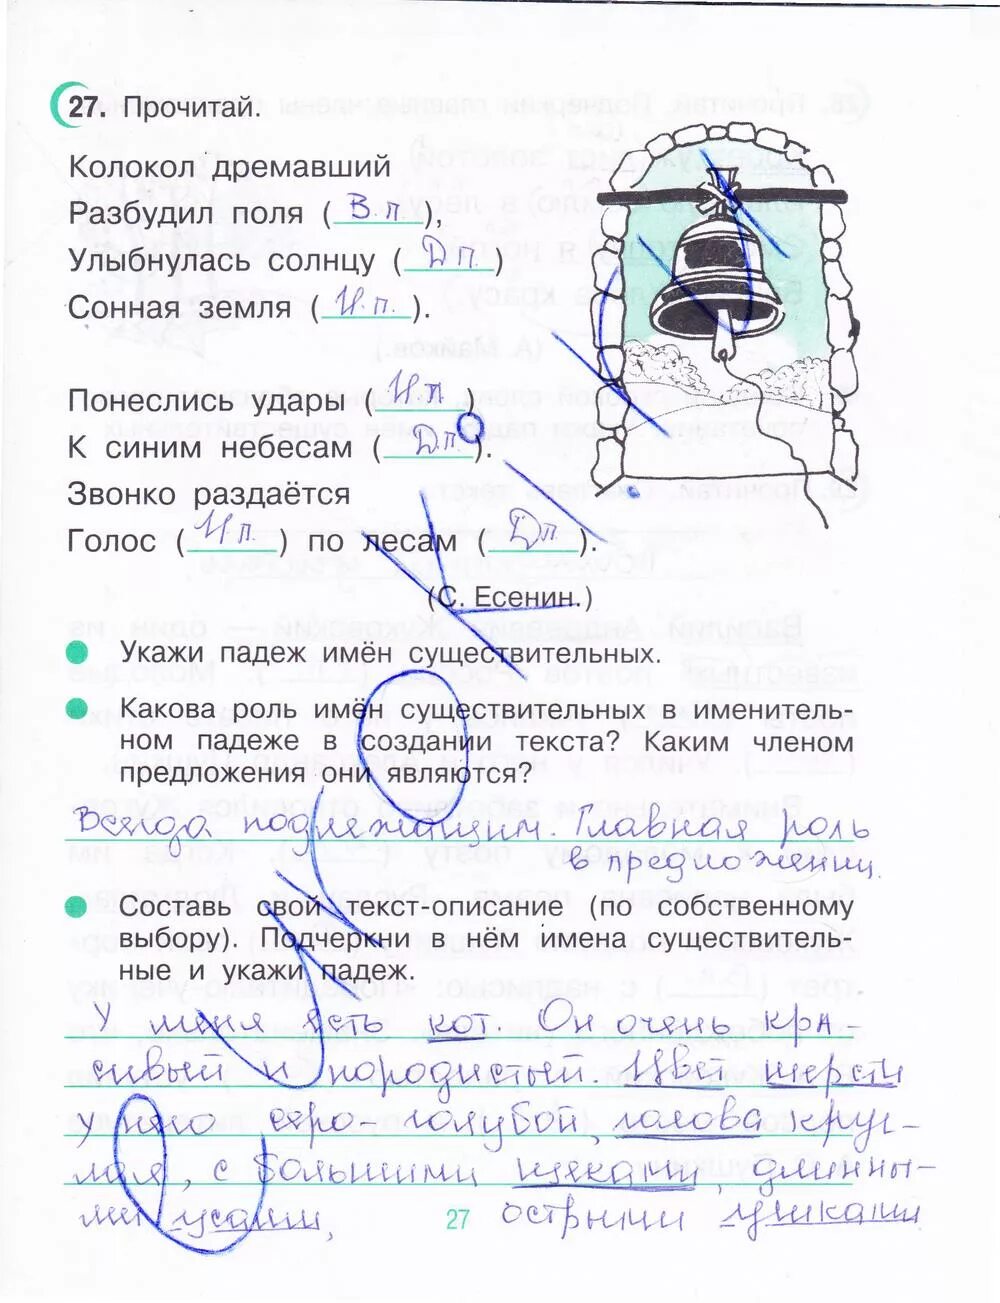 27. Прочитай.
Колокол дремавший
Разбудил поля ( В.п. ),
Улыбнулась солнцу ( Д.п. )
Сонная земля ( И.п. ).
Понеслись удары ( И.п. )
К синим небесам ( Д.п. ).
Звонко раздаётся
Голос ( И.п. ) по лесам ( Д.п. ).
(С. Есенин.)
Укажи падеж имён существительных.
Какова роль имён существительных в именитель-
ном падеже в создании текста? Каким членом
предложения они являются?
Всегда подлежащим. Главная роль
в предложении.
Составь свой текст-описание (по собственному
выбору). Подчеркни в нём имена существитель-
ные и укажи падеж.
У меня есть кот. Он очень кра-
сивый и породистый. Цвет шерсти
у него серо-голубой, голова круг-
лая, с большими щеками, длинны-
ми усами, острыми ушками
27